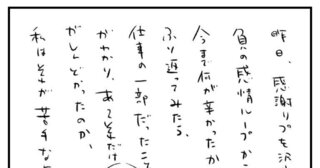 昨日、感謝リプを沢
負の感情ループか
今まで何が辛かったか
ふり返ってみたら、
仕事の一部だったこ
がわかり、
がしんどかったのか、
私はそれが苦手な